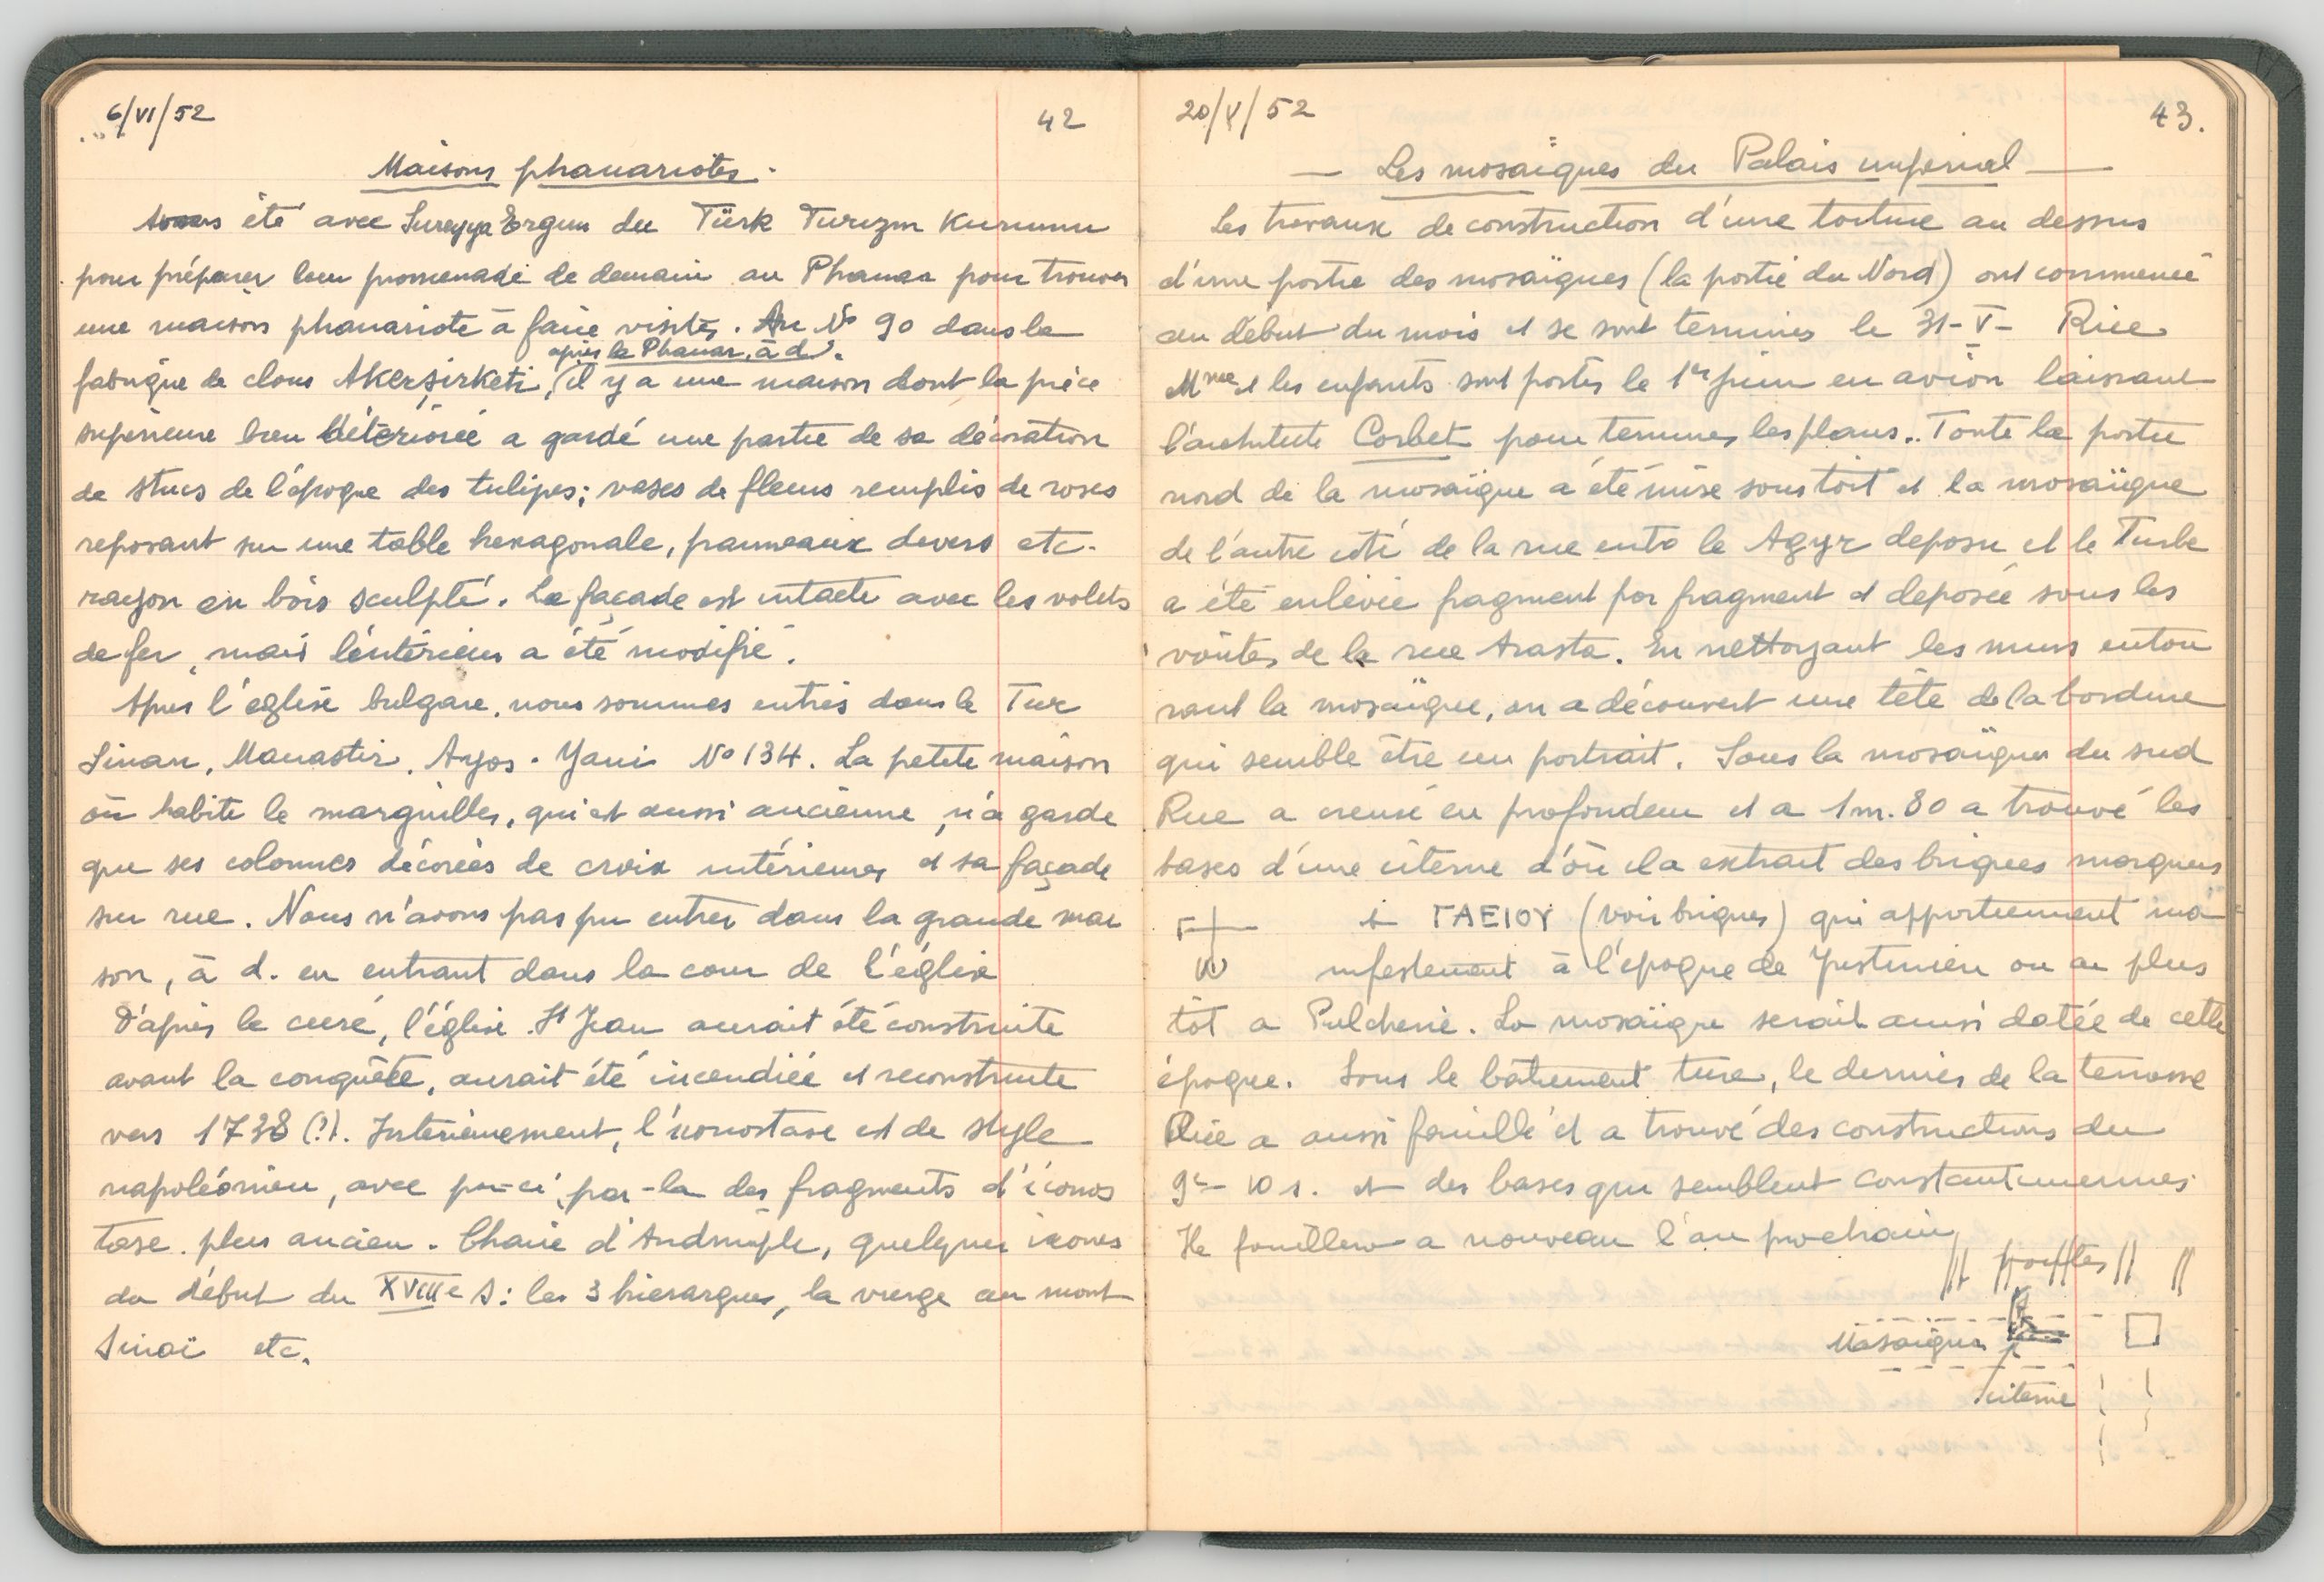 6/VI/52
42
Maisons phanariotes.
Avons été avec Sureyya Ergun du Türk Turizm Kurumu
pour préparer leur promenade de demain au Phanar pour trouver
une maison phanariote à faire visiter. Au No 90 dans la
après le Phanar, à d.
fabrique de clous Akerşirketi, il y a une maison dont la pièce
supérieure bien détériorée a gardé une partie de sa décoration
de stucs de l'époque des tulipes; vases de fleurs remplis de roses
reposant sur une table hexagonale, panneaux divers etc.
rayon en bois sculpté. La façade est intacte avec les volets
de fer, mais l'intérieur a été modifié.
Après l'église bulgare, nous sommes entrés dans le Tur
Sinan, Manastir, Ayos. Yani No 134. La petite maison
où habite le marguiller, qui est aussi ancienne, n'a gardé
que ses colonnes décorées de croix intérieures et sa façade
sur rue. Nous n'avons pas pu entrer dans la grande mai
son, à d. en entrant dans la cour de l'église
D'après le curé, l'église St Jean aurait été construite
avant la conquête, aurait été incendiée et reconstruite
vers 1738 (?). Interieurement, l'iconostase est de style
napoléonien, avec par-ci, par-la des fragments d'iconos
tase plus ancien. Chaire d'Andrinople, quelques icones
du début du XVIIIe s: les 3 hierarques, la vierge au mont
Sinai etc.
20/V/52
43.
— Les mosaïques du Palais impérial —
Les travaux de construction d'une toiture au dessus
d'une partie des mosaïques (la partie du Nord) ont commencé
au début du mois et se sont terminés le 31-V- Rice
Mme et les enfants sont partis le 1er juin en avion laissant
l'architecte Corbet pour terminer les plans. Toute la partie
nord de la mosaïque a été mise sous toit et la mosaïque
de l'autre coté de la rue entre le Agyr deposu et le Turbe
a été enlevée fragment par fragment et deposée sous les
voûtes de la rue Arasta. En nettoyant les murs entou
rant la mosaïque, on a découvert une tête de la bordure
qui semble être un portrait. Sous la mosaïque du sud
Rice a creusé en profondeur et a 1m.80 a trouvé les
bases d'une citerne d'où il a extrait des briques marquées
Γ ω et ΓΑΕΙΟΥ (voir briques) qui appartiennent ma
nifestement à l'époque de Justinien ou au plus
tôt a Pulcherie. La mosaïque serait aussi datée de cette
époque. Sous le bâtiment turc, le dernier de la terrasse
Rice a aussi fouillé et a trouvé des constructions du
9e- 10 s. et des bases qui semblent constantiniennes.
Il fouillera a nouveau l'an prochain
Mosaïque
citerne